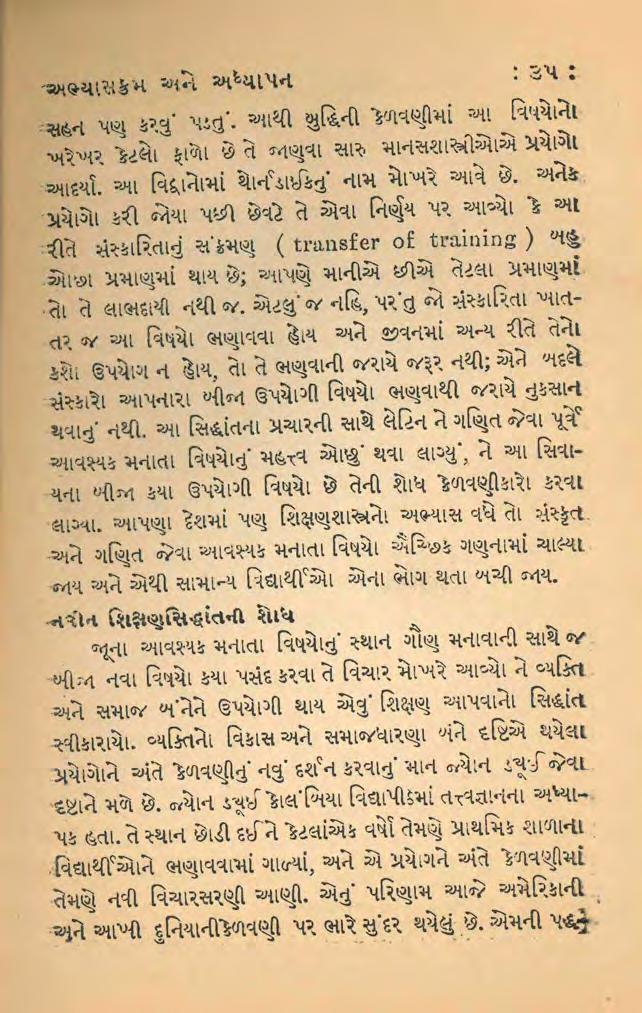 અભ્યાસક્રમ અને અધ્યાપન : ૩૫ :
સહન પણ કરવું પડતું. આથી બુદ્ધિની કેળવણીમાં આ વિષયોનો
ખરેખર કેટલો ફાળો છે તે જાણવા સારુ માનસશાસ્ત્રીઓએ પ્રયોગો
આદર્યા. આ વિદ્વાનોમાં થોર્નડાઈકનું નામ મોખરે આવે છે. અનેક
પ્રયોગો કરી જોયા પછી છેવટે તે એવા નિર્ણય પર આવ્યો કે આ
રીતે સંસ્કારિતાનું સંક્રમણ ( transfer of training ) બહુ
ઓછા પ્રમાણમાં થાય છે; આપણે માનીએ છીએ તેટલા પ્રમાણમાં
તો તે લાભદાયી નથી જ. એટલું જ નહિ, પરંતુ જો સંસ્કારિતા ખાત-
તર જ આ વિષયો ભણાવવા હોય અને જીવનમાં અન્ય રીતે તેનો
કશો ઉપયોગ ન હોય, તો તે ભણવાની જરાયે જરૂર નથી; એને બદલે
સંસ્કારો આપનારા બીજા ઉપયોગી વિષયો ભણવાથી જરાયે નુકસાન
થવાનું નથી. આ સિદ્ધાંતના પ્રચારની સાથે લેટિન ને ગણિત જેવા પૂર્વે
આવશ્યક મનાતા વિષયોનું મહત્ત્વ ઓછું થવા લાગ્યું, ને આ સિવા-
યના બીજા કયા ઉપયોગી વિષયો છે તેની શોધ કેળવણીકારો કરવા
લાગ્યા. આપણા દેશમાં પણ શિક્ષણશાસ્ત્રનો અભ્યાસ વધે તો સંસ્કૃત
અને ગણિત જેવા આવશ્યક મનાતા વિષયો ઐચ્છિક ગણનામાં ચાલ્યા
જાય અને એથી સામાન્ય વિદ્યાર્થીઓ એના ભોગ થતા બચી જાય.
નવીન શિક્ષણસિદ્ધાંતની શોધ
જૂના આવશ્યક મનાતા વિષયોનું સ્થાન ગૌણ મનાવાની સાથે જ
બીજા નવા વિષયો કયા પસંદ કરવા તે વિચાર મોખરે આવ્યો ને વ્યક્તિ
અને સમાજ બંનેને ઉપયોગી થાય એવું શિક્ષણ આપવાનો સિદ્ધાંત
સ્વીકારાયો. વ્યક્તિનો વિકાસ અને સમાજધારણા બંને દૃષ્ટિએ થયેલા
પ્રયોગોને અંતે કેળવણીનું નવું દર્શન કરવાનું માન જ્યોન ડ્યૂઈ જેવા
દ્રષ્ટાને મળે છે. જ્યોન ડ્યૂઈ કોલંબિયા વિદ્યાપીઠમાં તત્ત્વજ્ઞાનના અધ્યા-
પક હતા. તે સ્થાન છોડી દઈ ને કેટલાંએક વર્ષો તેમણે પ્રાથમિક શાળાના
વિદ્યાર્થીઓને ભણાવવામાં ગાળ્યાં, અને એ પ્રયોગને અંતે કેળવણીમાં
તેમણે નવી વિચારસરણી આણી. એનું પરિણામ આજે અમેરિકાની
અને આખી દુનિયાની કેળવણી પર ભારે સુંદર થયેલું છે. એમની